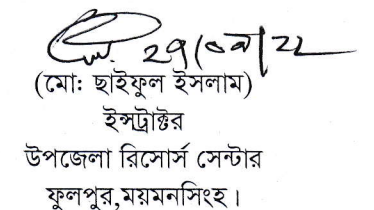 ২৭/০৯/২২
(মো: ছাইফুল ইসলাম)
ইন্সট্রাক্টর
উপজেলা রিসোর্স সেন্টার
ফুলপুর,ময়মনসিংহ।